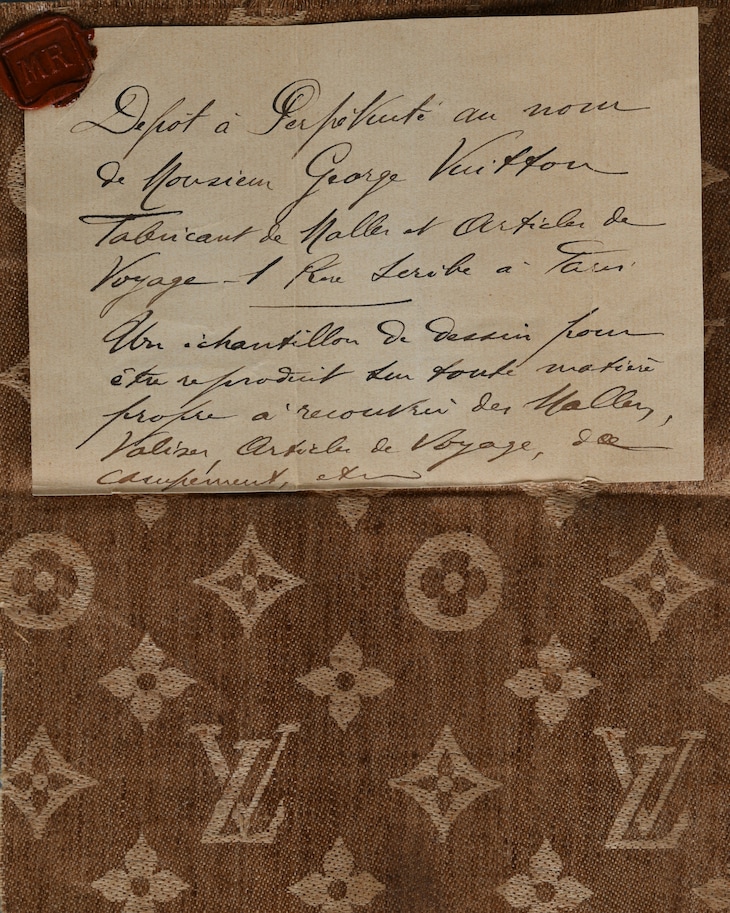 MR
Depôt à Perpétuité au nom
de Monsieur George Vuitton
Fabricant de Malles et Articles de
Voyage – 1 Rue Scribe à Paris
Un échantillon de dessin pour
être reproduit sur toute matière
propre à recouvrir des Malles,
Valises, Articles de Voyage, de
campement, etc
LV LV